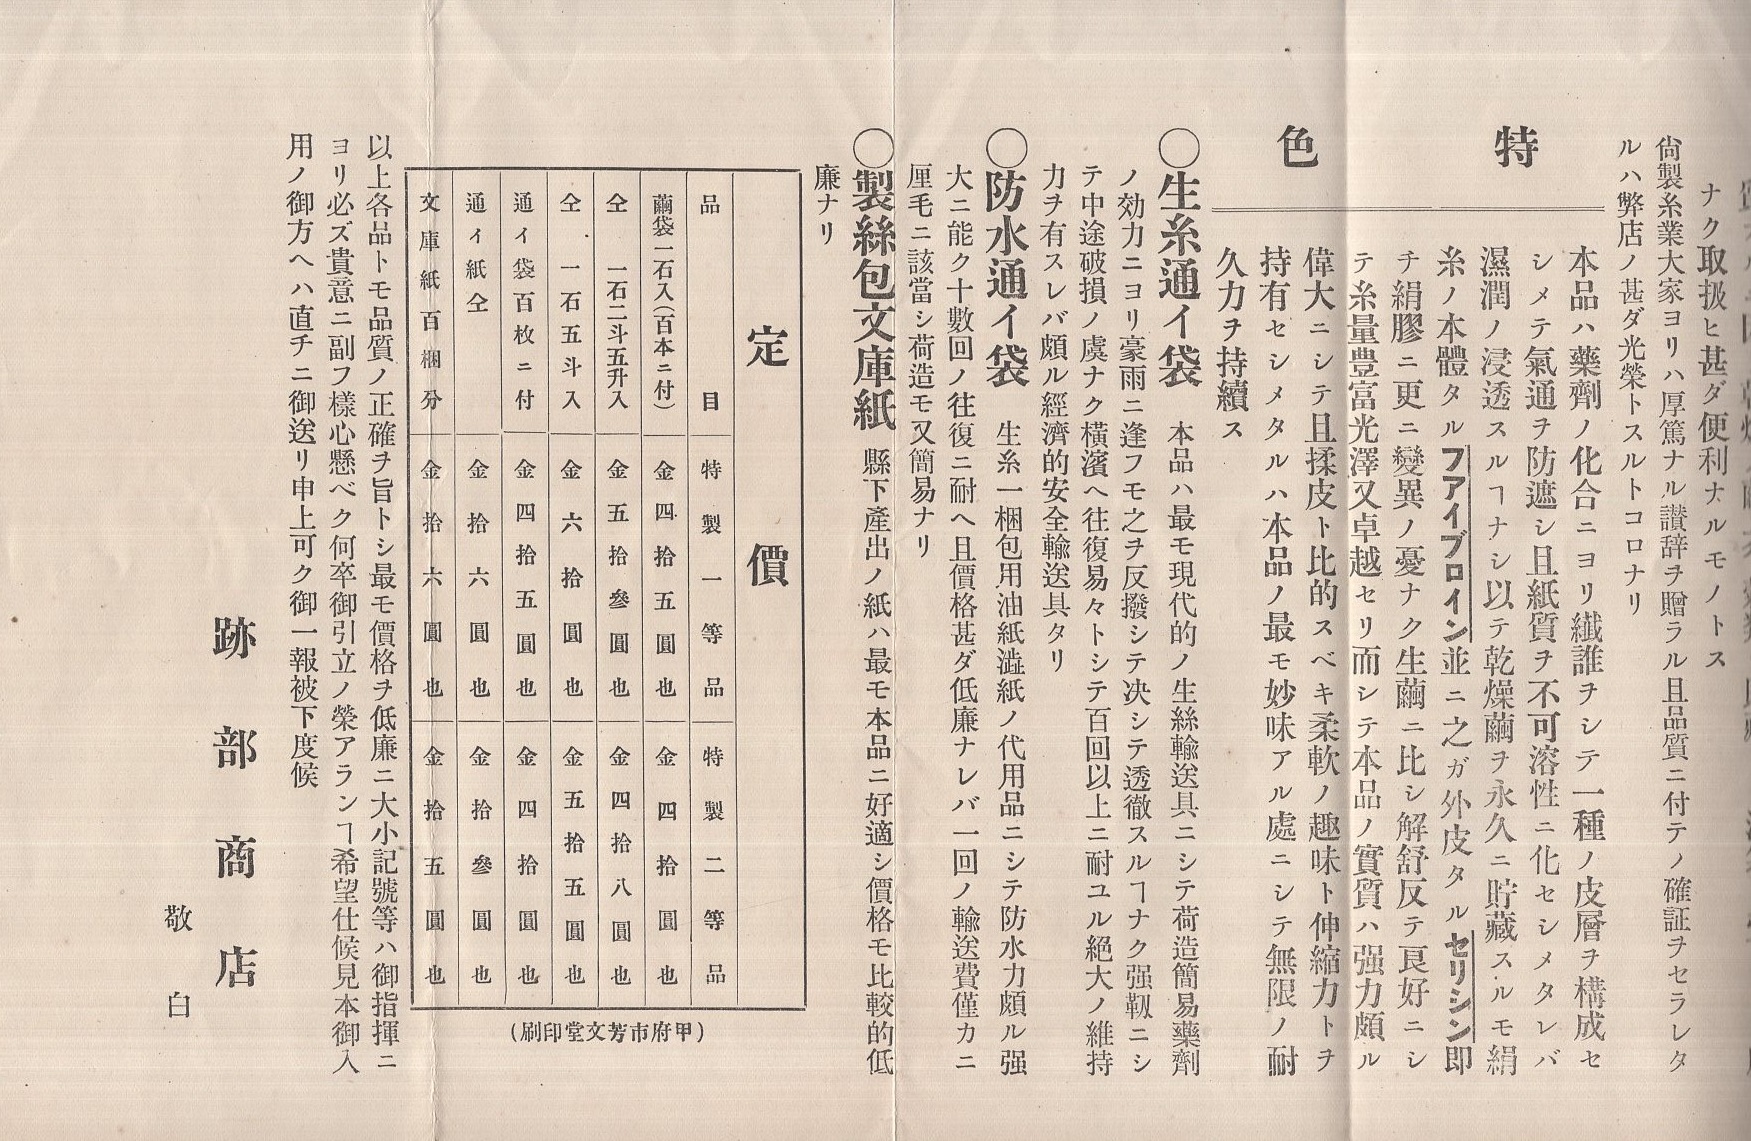 ナク取扱ヒ甚ダ便利ナルモノトス
尙製糸業大家ヨリハ厚篤ナル讃辞ヲ贈ラル且品質ニ付テノ確証ヲセラレタ
ルハ弊店ノ甚ダ光榮トスルトコロナリ
特色
本品ハ藥劑ノ化合ニヨリ纎誰ヲシテ一種ノ皮層ヲ構成セ
シメテ氣通ヲ防遮シ且紙質ヲ不可溶性ニ化セシメタレバ
濕潤ノ浸透スルヿナシ以テ乾燥繭ヲ永久ニ貯藏スルモ絹
糸ノ本體タルフアイブロイン並ニ之ガ外皮タルセリシン即
チ絹膠ニ更ニ變異ノ憂ナク生繭ニ比シ解舒反テ良好ニシ
テ糸量豊富光澤又卓越セリ而シテ本品ノ實質ハ强力頗ル
偉大ニシテ且揉皮ト比的スベキ柔軟ノ趣味ト伸縮力トヲ
持有セシメタルハ本品ノ最モ妙味アル處ニシテ無限ノ耐
久力ヲ持續ス
◯生糸通イ袋 本品ハ最モ現代的ノ生絲輸送具ニシテ荷造簡易藥劑
ノ効力ニヨリ豪雨ニ逢フモ之ヲ反撥シテ决シテ透徹スルヿナク强靱ニシ
テ中途破損ノ虞ナク橫濱ヘ往復易々トシテ百回以上ニ耐ユル絕大ノ維持
力ヲ有スレバ頗ル經濟的安全輸送具タリ
◯防水通イ袋 生糸一梱包用油紙澁紙ノ代用品ニシテ防水力頗ル强
大ニ能ク十數回ノ往復ニ耐ヘ且價格甚ダ低廉ナレバ一回ノ輸送費僅カニ
厘毛ニ該當シ荷造モ又簡易ナリ
◯製絲包文庫紙 縣下產出ノ紙ハ最モ本品ニ好適シ價格モ比較的低
廉ナリ
定價
品目 特製一等品 特製二等品
繭袋一石入(百本ニ付) 金四拾五圓也 金四拾圓也
仝 一石二斗五升入 金五拾參圓也 金四拾八圓也
仝 一石五斗入 金六拾圓也 金五拾五圓也
通イ袋百枚ニ付 金四拾五圓也 金四拾圓也
通イ紙仝 金拾六圓也 金拾參圓也
文庫紙百梱分 金拾六圓也 金拾五圓也
(甲府市芳文堂印刷)
以上各品トモ品質ノ正確ヲ旨トシ最モ價格ヲ低廉ニ大小記號等ハ御指揮ニ
ヨリ必ズ貴意ニ副フ樣心懸ベク何卒御引立ノ榮アランヿ希望仕候見本御入
用ノ御方ヘハ直チニ御送リ申上可ク御一報被下度候
跡部商店
敬白